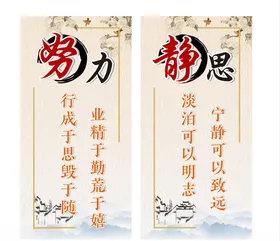 努力
业精于勤荒于嬉
行成于思毁于随
静思
宁静可以致远
淡泊可以明志